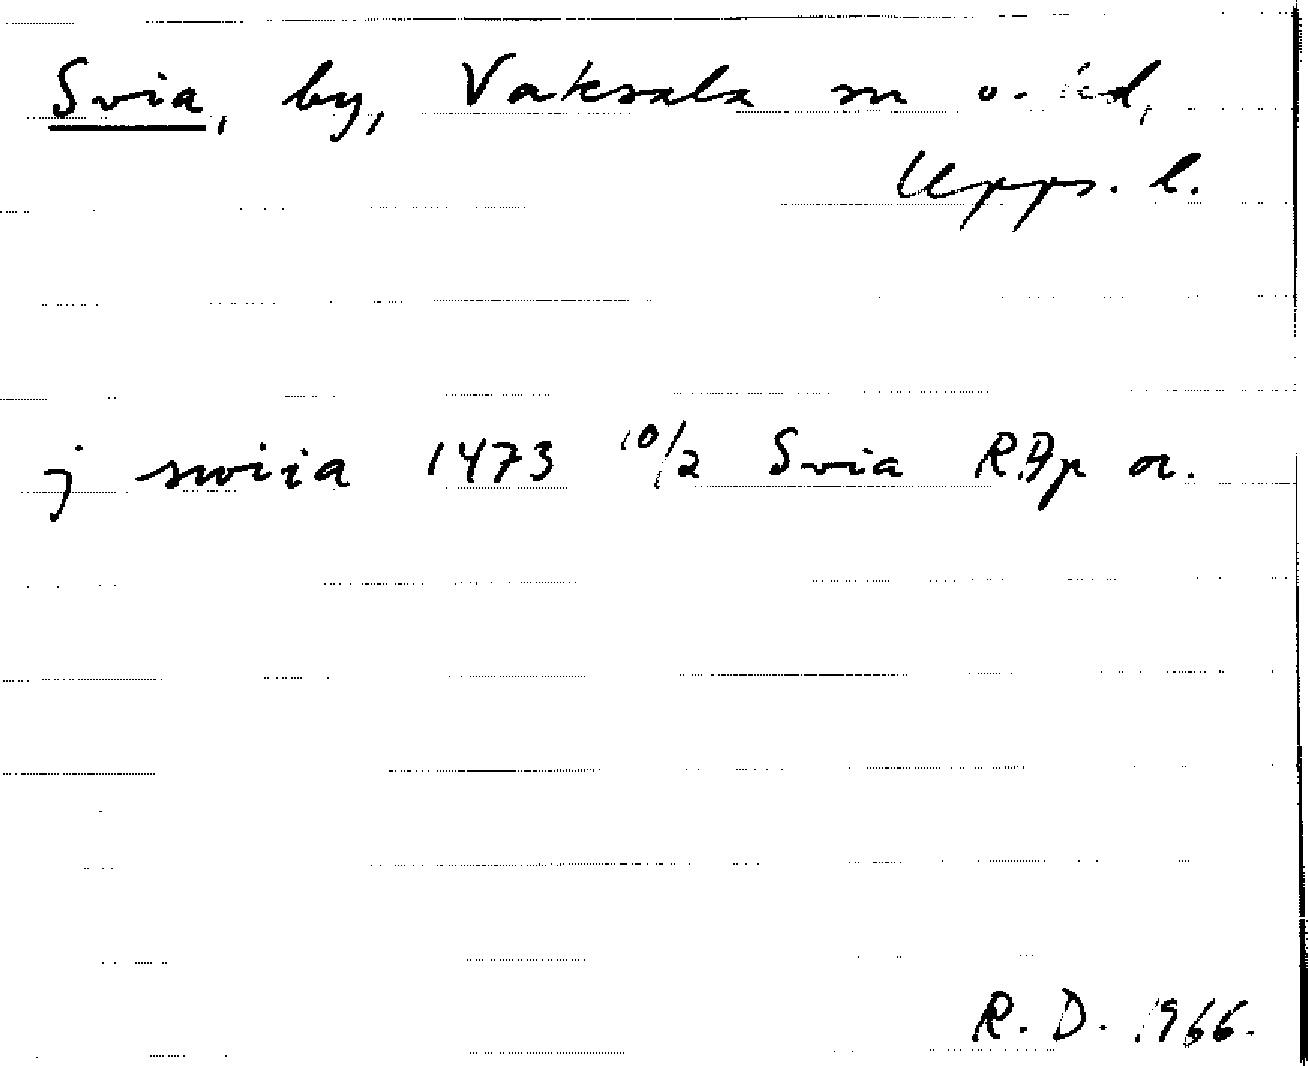 Svia, by, Vaksala sn o. hd,
Upps. l.
j swiia 1473 10/2 Svia RAp or.
R. D. 1966.